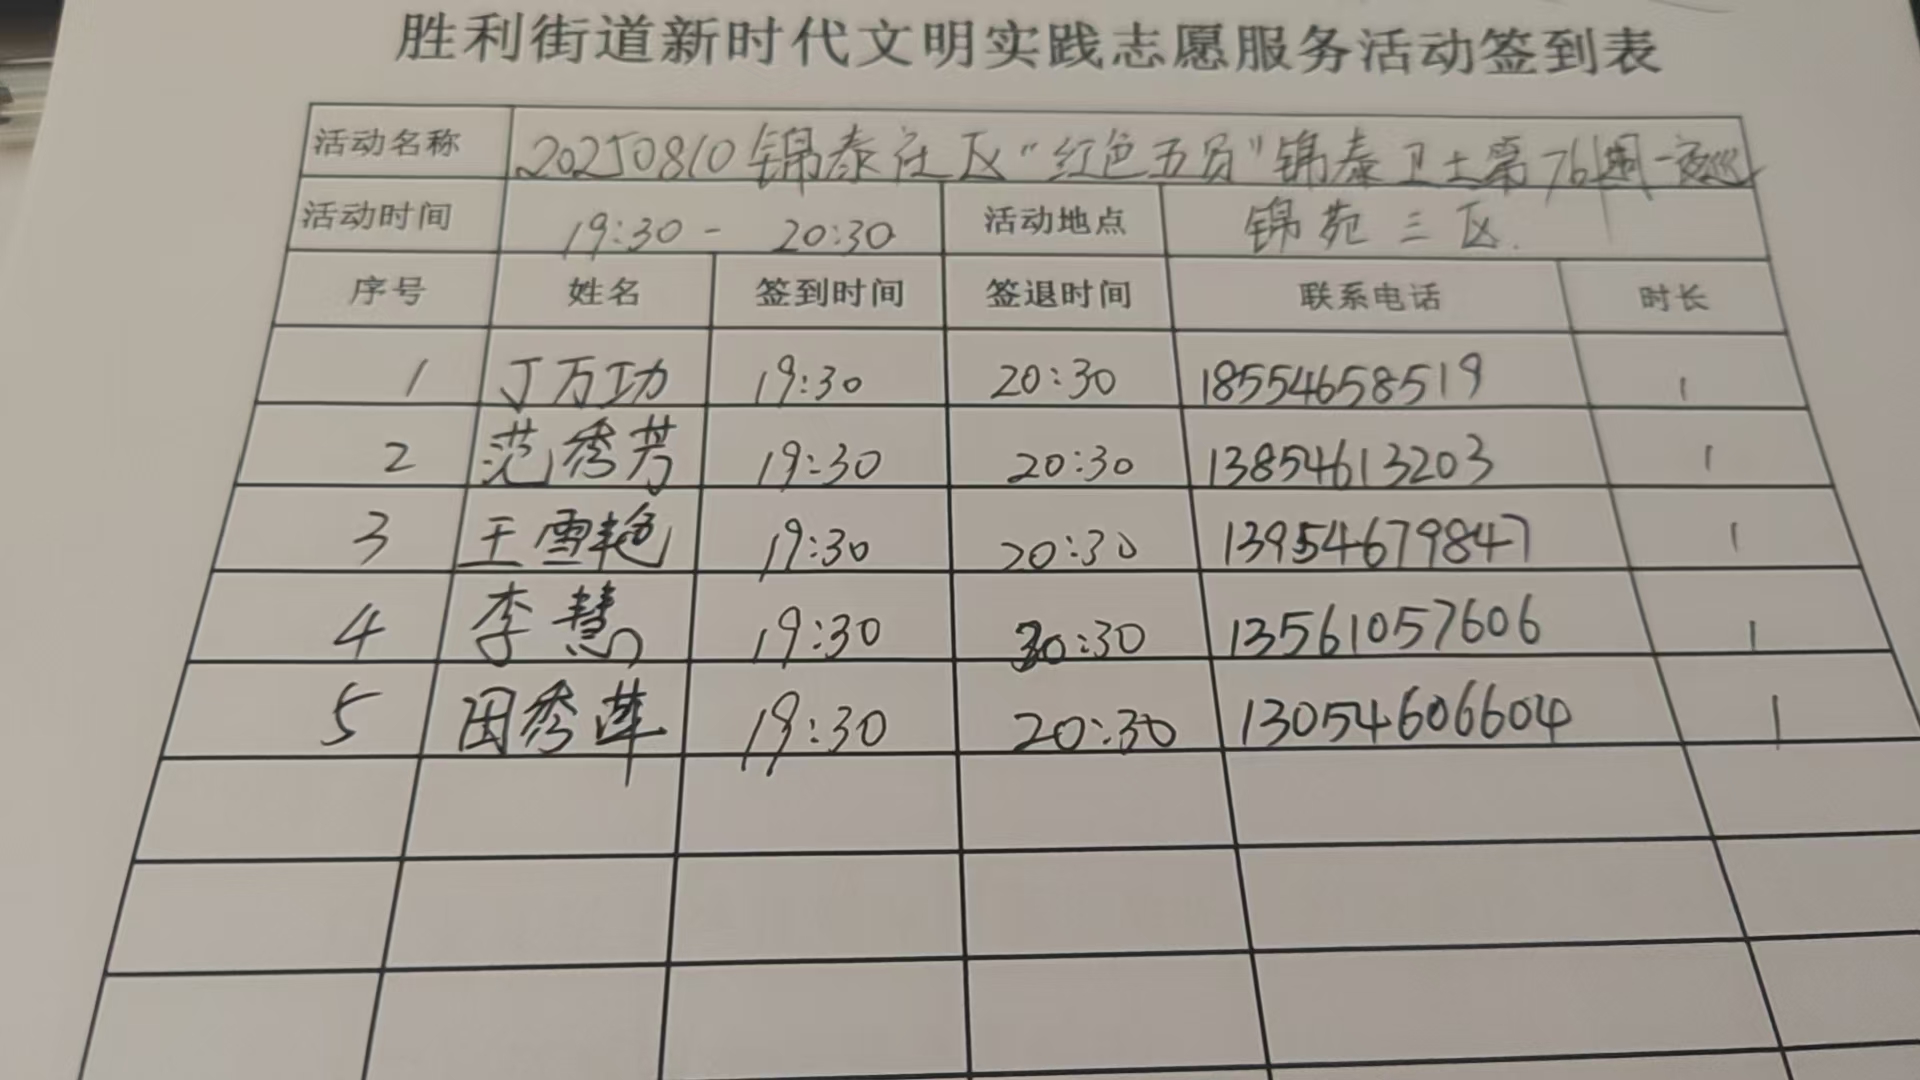 胜利街道新时代文明实践志愿服务活动签到表
活动名称 20250810锦泰社区“红色五员”锦泰卫士第76周-夜巡
活动时间 19:30 - 20:30 活动地点 锦苑三区.
序号 姓名 签到时间 签退时间 联系电话 时长
1 丁万功 19:30 20:30 18554658519 1
2 范秀芳 19:30 20:30 13854613203 1
3 王雪艳 19:30 20:30 13954679847 1
4 李慧 19:30 20:30 13561057606 1
5 田秀莲 19:30 20:30 13054606604 1